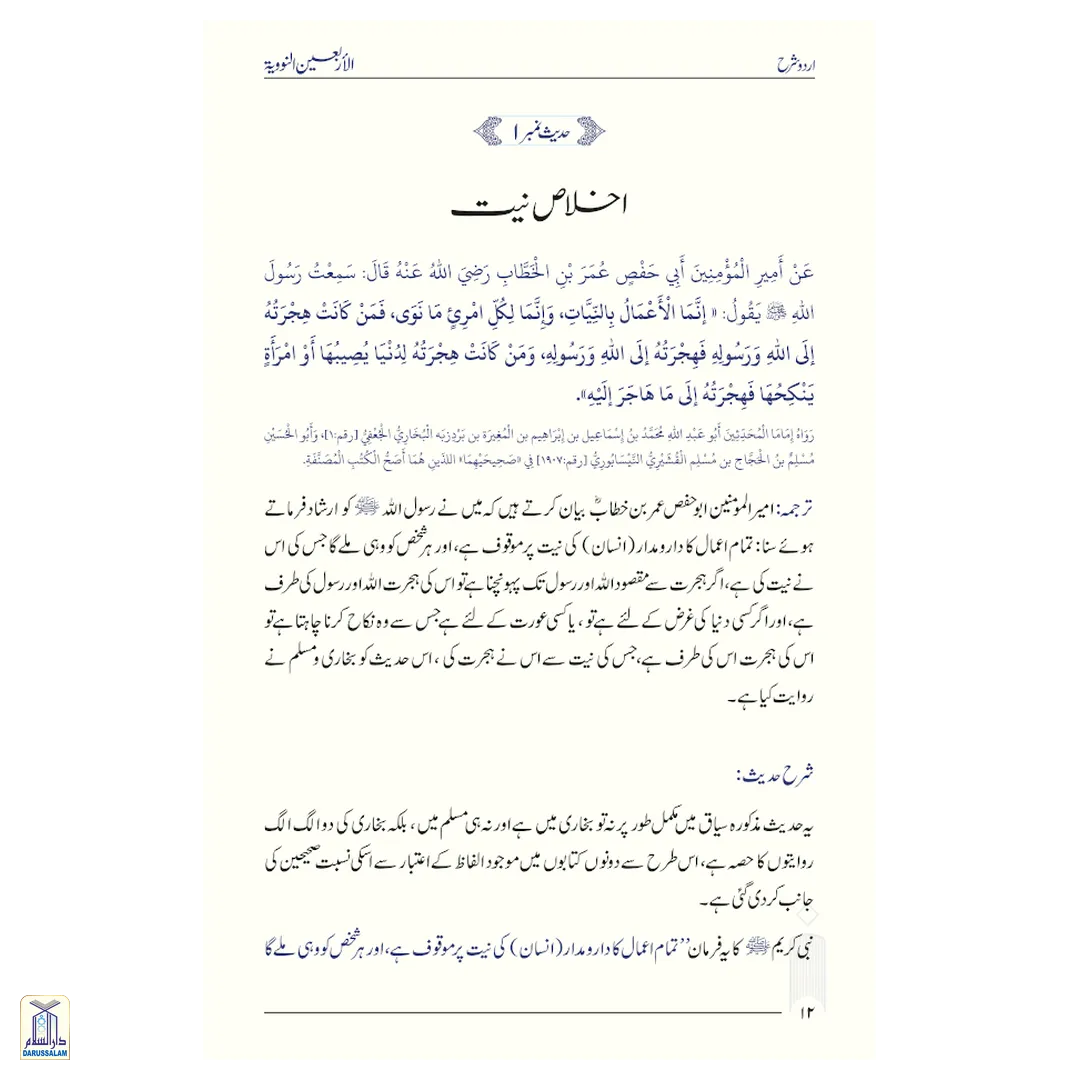 اردو شرح
الأربعين النووية
حدیث نمبر ۱
اخلاص نیت
عَنْ أَمِيرِ الْمُؤْمِنِينَ أَبِي حَفْصٍ عُمَرَ بْنِ الْخَطَّابِ رَضِيَ اللهُ عَنْهُ قَالَ: سَمِعْتُ رَسُولَ
اللهِ ﷺ يَقُولُ: « إِنَّمَا الْأَعْمَالُ بِالنِّيَّاتِ، وَإِنَّمَا لِكُلِّ امْرِئٍ مَا نَوَى، فَمَنْ كَانَتْ هِجْرَتُهُ
إِلَى اللهِ وَرَسُولِهِ فَهِجْرَتُهُ إِلَى اللهِ وَرَسُولِهِ، وَمَنْ كَانَتْ هِجْرَتُهُ لِدُنْيَا يُصِيبُهَا أَوْ امْرَأَةٍ
يَنْكِحُهَا فَهِجْرَتُهُ إِلَى مَا هَاجَرَ إِلَيْهِ».
رَوَاهُ إِمَامَا الْمُحَدِّثِينَ أَبُو عَبْدِ اللهِ مُحَمَّدُ بنُ إِسْمَاعِيل بن إِبْرَاهِيم بن الْمُغِيرَة بن بَرْدِزبَه الْبُخَارِيُّ الْجُعْفِيُّ [رقم:١]، وَأَبُو الْحُسَيْنِ
مُسْلِمٌ بنُ الْحَجَّاج بن مُسْلِم الْقُشَيْرِيُّ النَّيْسَابُورِيُّ [رقم:١٩٠٧] فِي «صَحِيحَيْهِمَا» اللذَينِ هُمَا أَصَحُّ الْكُتُبِ الْمُصَنَّفَةِ.
ترجمہ: امیر المومنین ابوحفص عمر بن خطابؓ بیان کرتے ہیں کہ میں نے رسول اللہ ﷺ کو ارشاد فرماتے
ہوئے سنا: تمام اعمال کا دارومدار (انسان) کی نیت پر موقوف ہے، اور ہر شخص کو وہی ملے گا جس کی اس
نے نیت کی ہے، اگر ہجرت سے مقصود اللہ اور رسول تک پہونچنا ہے تو اس کی ہجرت اللہ اور رسول کی طرف
ہے، اور اگر کسی دنیا کی غرض کے لئے ہے تو ، یا کسی عورت کے لئے ہے جس سے وہ نکاح کرنا چاہتا ہے تو
اس کی ہجرت اس کی طرف ہے، جس کی نیت سے اس نے ہجرت کی ، اس حدیث کو بخاری و مسلم نے
روایت کیا ہے۔
شرح حدیث:
یہ حدیث مذکورہ سیاق میں مکمل طور پر نہ تو بخاری میں ہے اور نہ ہی مسلم میں ، بلکہ بخاری کی دو الگ الگ
روایتوں کا حصہ ہے، اس طرح سے دونوں کتابوں میں موجود الفاظ کے اعتبار سے اسکی نسبت صحیحین کی
جانب کر دی گئی ہے۔
نبی کریم ﷺ کا یہ فرمان ”تمام اعمال کا دارومدار (انسان) کی نیت پر موقوف ہے، اور ہر شخص کو وہی ملے گا
۱۲
دار السلام
DARUSSALAM